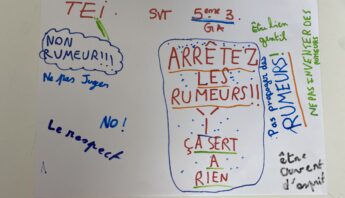 TEi.
SVT
5ème 3.
GA
NON
RUMEUR!!!
Ne pas Juger
NO!
Le respect
ARRÊTEZ
LES
RUMEURS!!
ÇA SERT
A
RIEN
Être bien
gentil
Pas propager des
RUMEURS!
NE PAS INVENTER DES
RUMEURS
être
ouvert
d'esprit